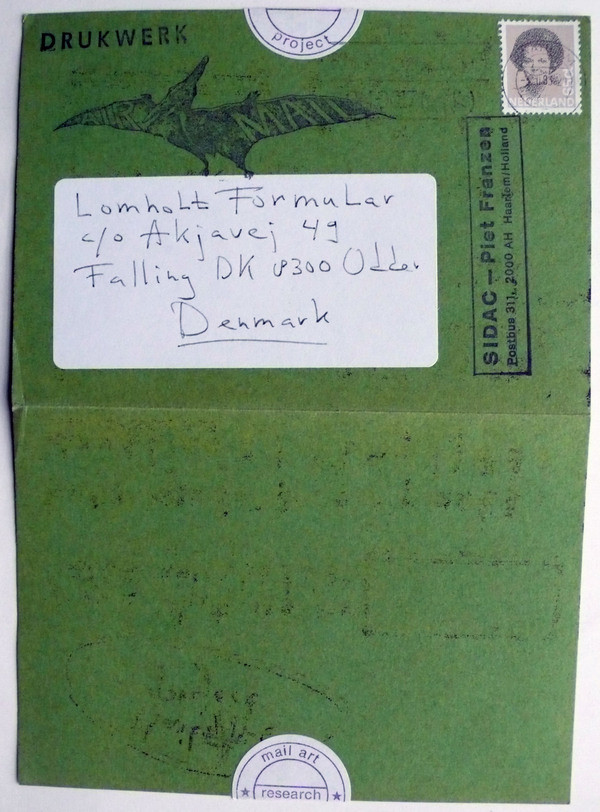 DRUKWERK
project
AIR MAIL
NEDERLAND
Lomholt Formular
c/o Akjavej 49
Falling DK 8300 Odder
Denmark
SIDAC — Piet Franzen
Postbus 311, 2000 AH Haarlem/Holland
mail art
research